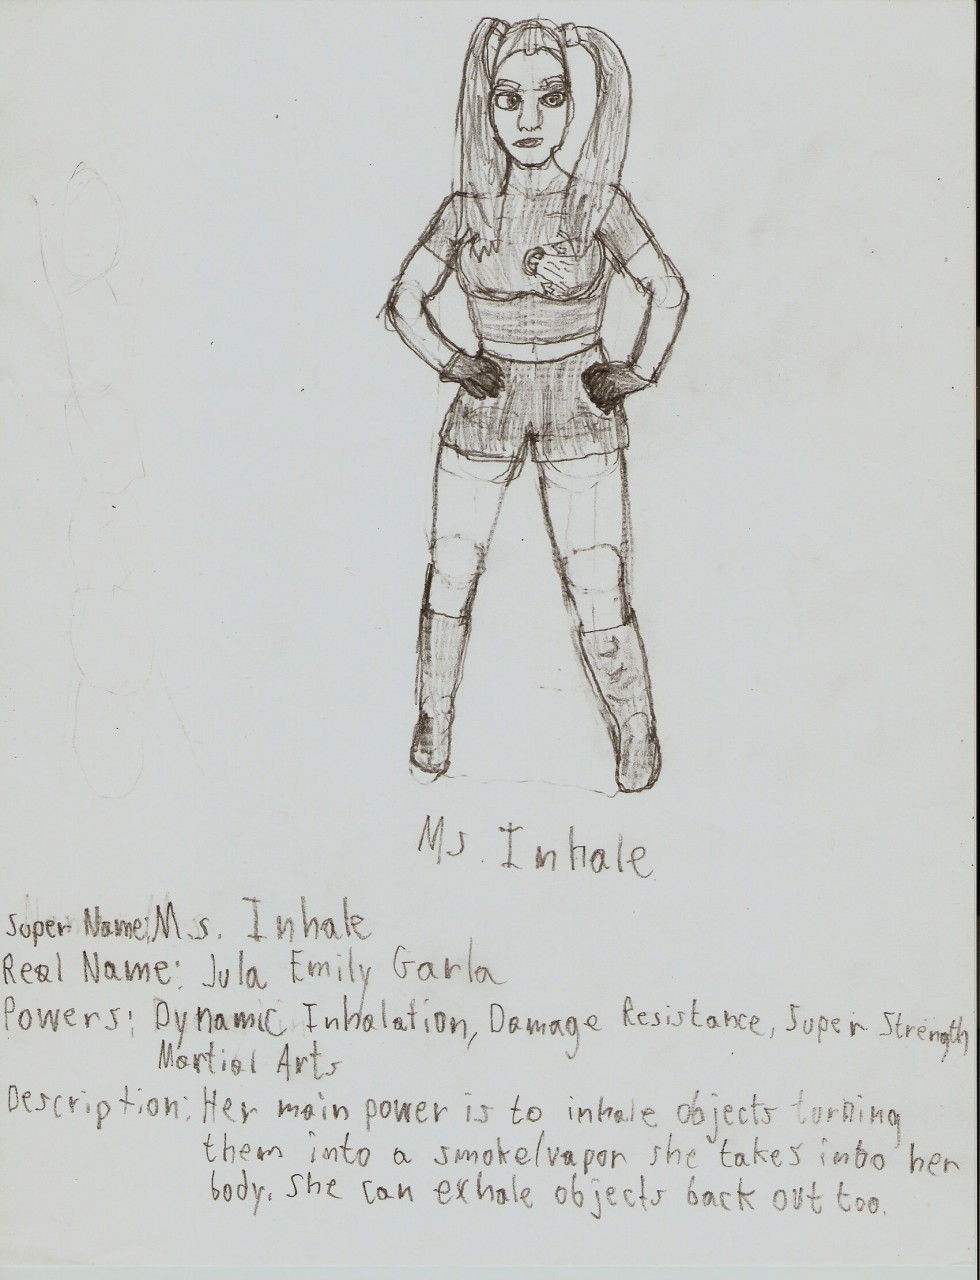 Ms. Inhale
Super Name: Ms. Inhale
Real Name: Jula Emily Garla
Powers: Dynamic Inhalation, Damage Resistance, Super Strength
Martial Arts
Description: Her main power is to inhale objects turning
them into a smoke/vapor she takes into her
body. She can exhale objects back out too.